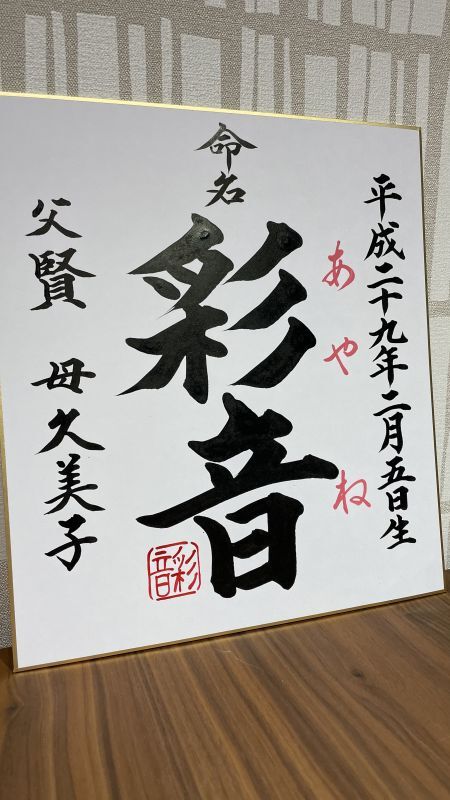 平成二十九年二月五日生
あやね
命名
彩音
父賢 母久美子
彩音